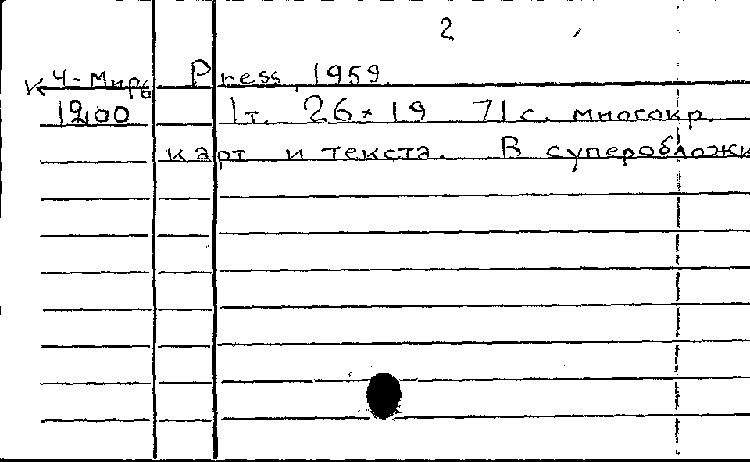 2
К Ч-Миръ Press, 1959.
1200 1 т. 26 × 19 71 с. многокр.
карт и текста. В суперобложк